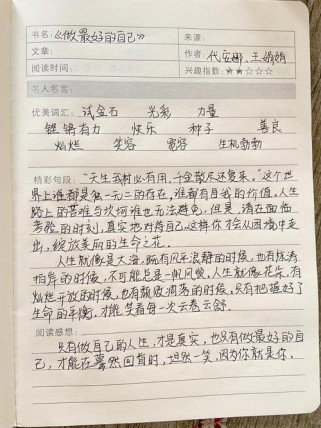 书名：《做最好的自己》 来源：
文章： 作者：代安娜、王娟娟
阅读时间： 兴趣指数：★★☆☆☆
名人名言：
优美词汇：试金石 光彩 力量
铿锵有力 快乐 种子 善良
灿烂 笑容 宽容 生机勃勃
精彩句段："天生我材必有用，千金散尽还复来。"这个世
界上谁都是独一无二的存在，谁都有自我的价值。人生
路上的苦难与坎坷谁也无法避免，但是，请在面临
考验的时刻，真实地对待自己这样你才会从困境中走
出，绽放美丽的生命之花。
人生就像是大海，既有风平浪静的时候，也有惊涛
拍岸的时候，不可能总是一帆风貌，人生就像花朵，有
灿烂开放的时候，也有颓败凋落的时候，只有把握好了
生命的平衡，才能笑看每一次云卷云舒.
阅读感想：
只有做自己的人生，才是真实，也只有做最好的自
己，才能在蓦然回首时，坦然一笑，因为你就是你.